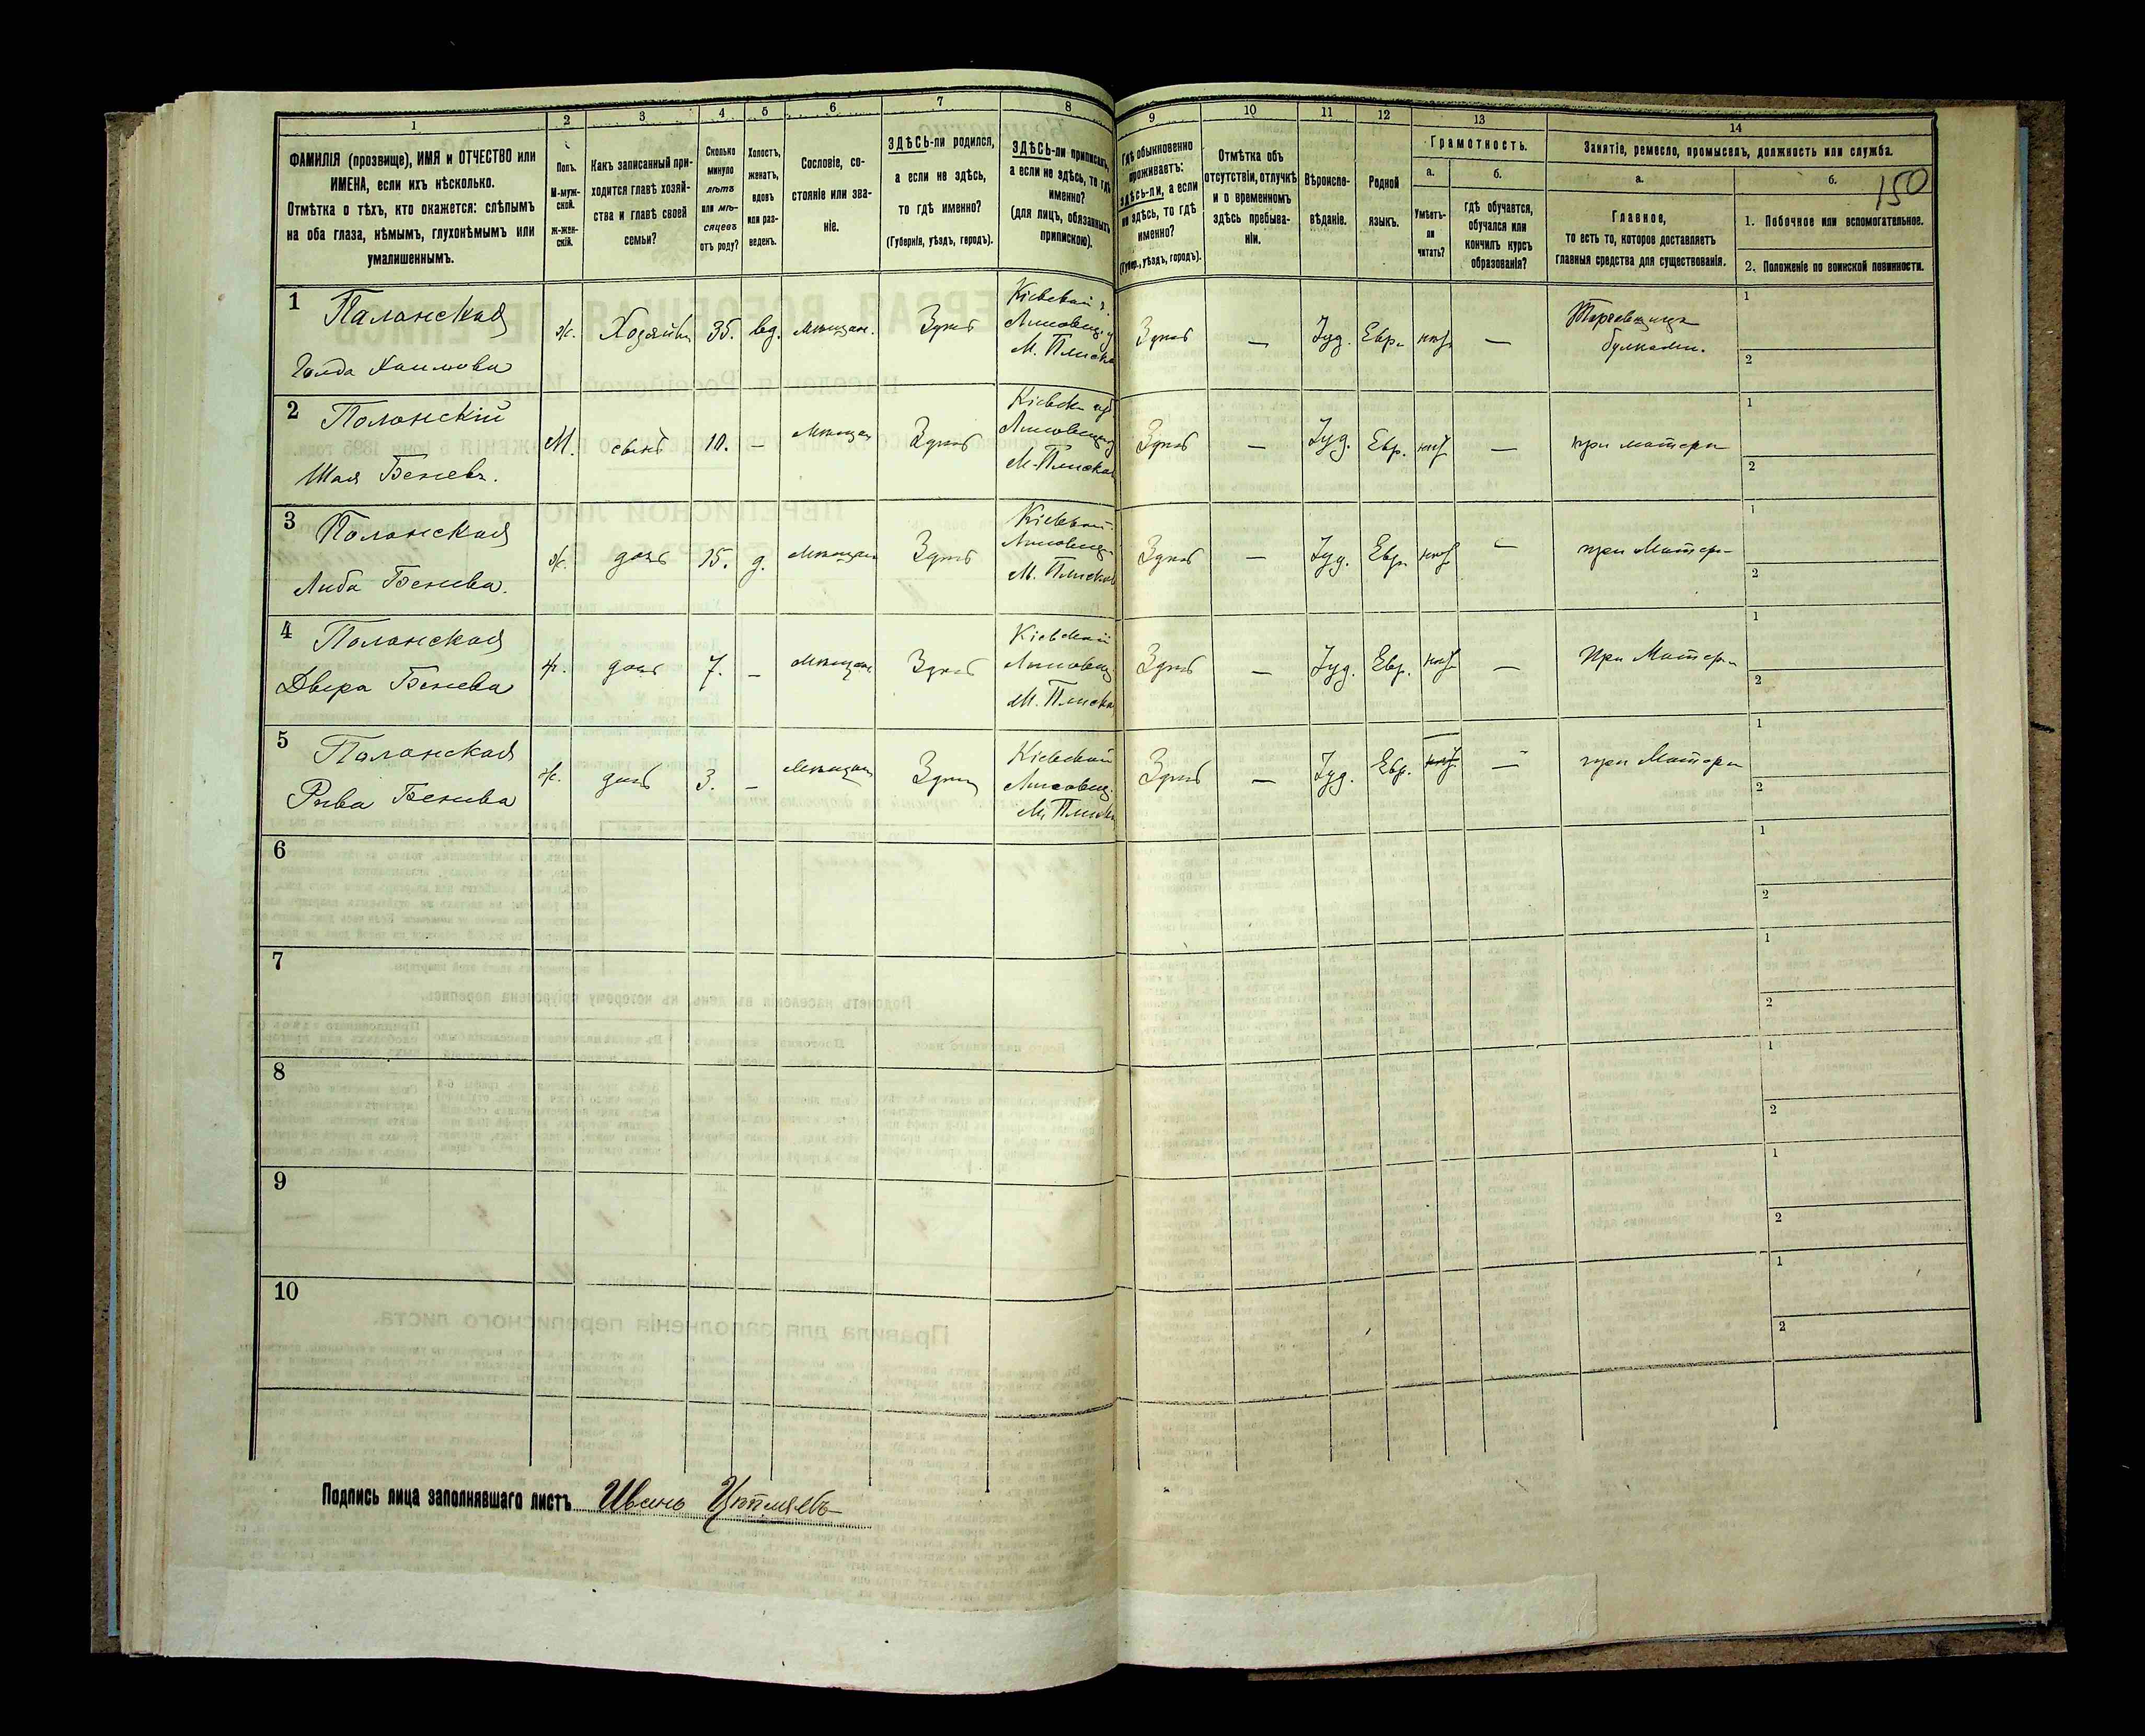 150
1
2
3
4
5
6
7
8
9
10
11
12
13
14
ФАМИЛІЯ (прозвище), ИМЯ и ОТЧЕСТВО или
ИМЕНА, если ихъ нѣсколько.
Отмѣтка о тѣхъ, кто окажется: слѣпымъ
на оба глаза, нѣмымъ, глухонѣмымъ или
умалишеннымъ.
Полъ.
М-муж-
ской.
Ж-жен-
скій.
Какъ записанный при-
ходится главѣ хозяй-
ства и главѣ своей
семьи?
Сколько
минуло
лѣтъ
или мѣ-
сяцевъ
отъ роду?
Холостъ,
женатъ,
вдовъ
или раз-
веденъ.
Сословіе, со-
стояніе или зва-
ніе.
ЗДѢСЬ-ли родился,
а если не здѣсь,
то гдѣ именно?
(Губернія, уѣздъ, городъ).
ЗДѢСЬ-ли приписанъ,
а если не здѣсь, то гдѣ
именно?
(для лицъ, обязанныхъ
припискою).
Гдѣ обыкновенно
проживаетъ:
здѣсь-ли, а если
не здѣсь, то гдѣ
именно?
(Губерн., уѣздъ, городъ).
Отмѣтка объ
отсутствіи, отлучкѣ
и о временномъ
здѣсь пребыва-
ніи.
Вѣроиспо-
вѣданіе.
Родной
языкъ.
Грамотность.
а.
Умѣетъ-
ли
читать?
б.
гдѣ обучается,
обучался или
кончилъ курсъ
образованія?
Занятіе, ремесло, промыселъ, должность или служба.
а.
Главное,
то есть то, которое доставляетъ
главныя средства для существованія.
б.
1. Побочное или вспомогательное.
2. Положеніе по воинской повинности.
1 Паланская
Голда Хаимова
ж. Хозяйка 35. вд. мѣщан. Здѣсь
Кіевской г.
Липовец. у
М. Плиска
Здѣсь — Іуд. Евр. нѣт —
Торговщица
булками.
1
2
2 Полонскій
Шая Беневъ.
М. сынъ 10. — мѣщан Здѣсь
Кіевск. губ
Липовец у
М. Плиска
Здѣсь — Іуд. Евр. нѣт — при матери
1
2
3 Полонская
Либа Бенева.
ж. дочь 15. д. мѣщан Здѣсь
Кіевской
Липовец.
М. Плиска
Здѣсь — Іуд. Евр. нѣт — при Матери
1
2
4 Полонская
Двера Бенева
ж. дочь 7. — мѣщан Здѣсь
Кіевской
Липовец
М. Плиска
Здѣсь — Іуд. Евр. нѣт — При Матери
1
2
5 Полонская
Рива Бенева
ж. дочь 3. — мѣщан Здѣсь
Кіевской
Липовец.
М. Плиск
Здѣсь — Іуд. Евр. нѣт — при Матери
1
2
6
1
2
7
1
2
8
1
2
9
1
2
10
1
2
Подпись лица заполнявшаго листъ Иванъ